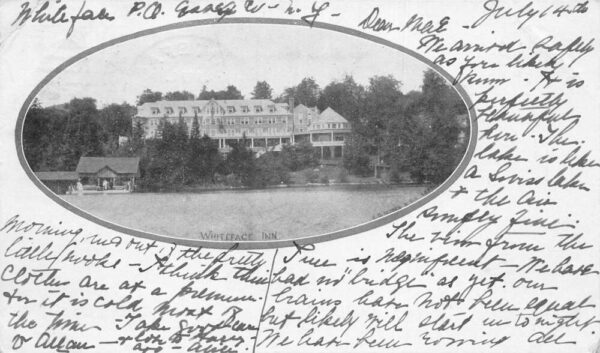 Whiteface P.O. Essex Co - N. Y -
July 14th
Dear Mae
We arrived safely
as you likely
know. It is
perfectly
beautiful
here. The
lake is like
a Swiss lake
& the air
simply fine.
The view from the
Inn is magnificent - We have
had no bridge as yet. our
trains have not been equal
but likely will start in tonight
We have been rowing all
WHITEFACE INN
morning in & out of the pretty
little nooks - I think thin
clothes are at a premium
for it is cold most of
the time - Take good care
& love to